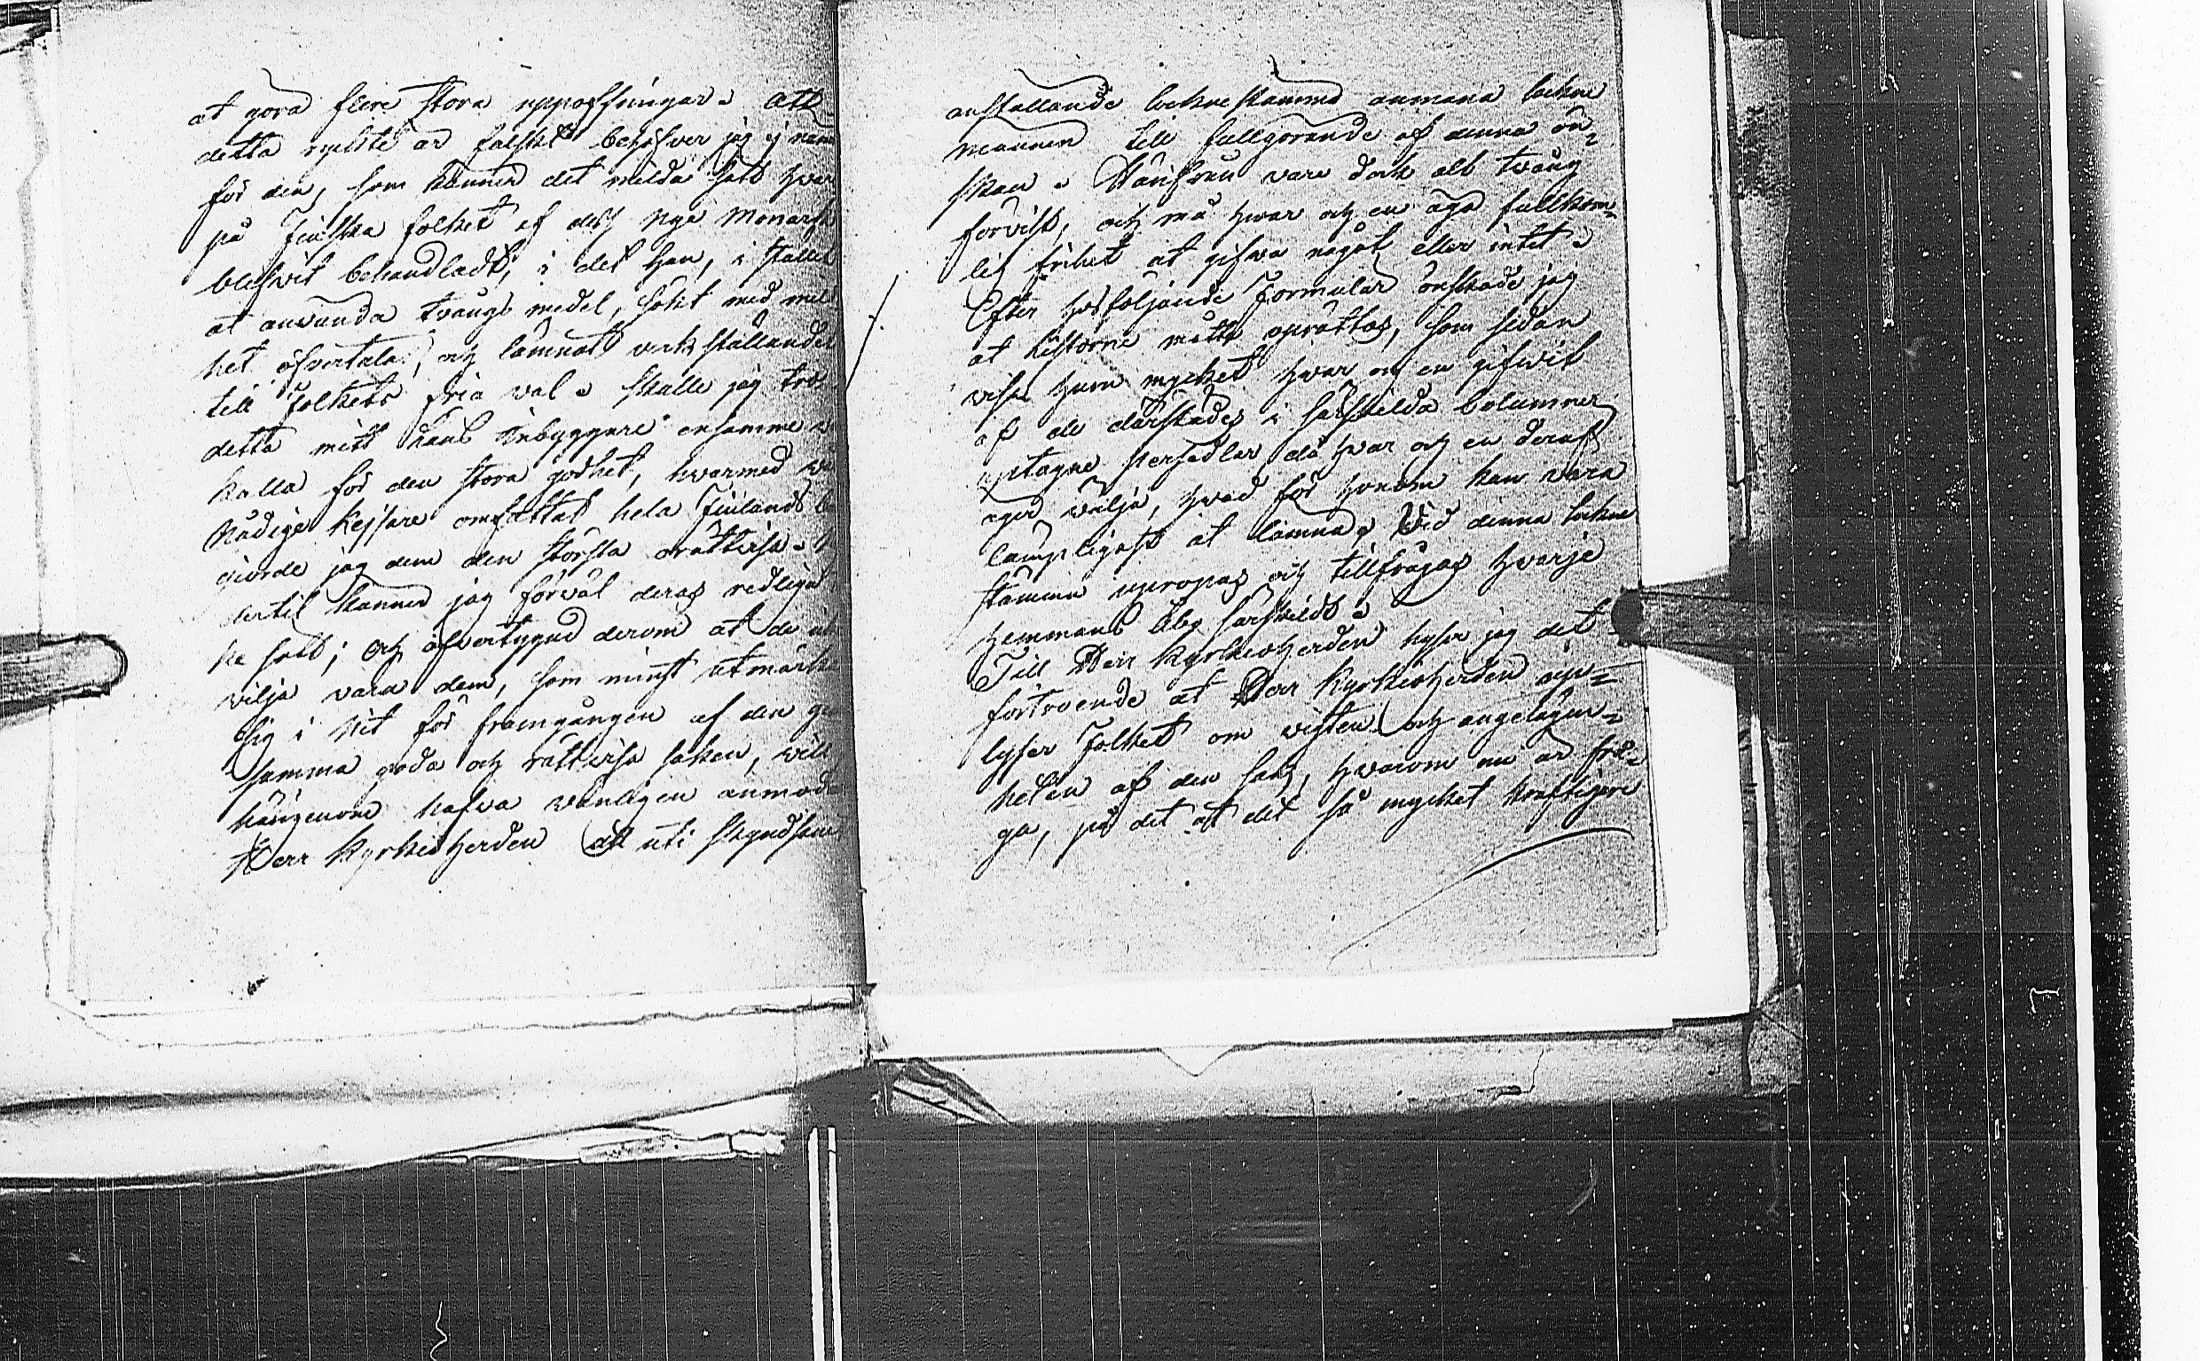 at göra flere stora uppoffringar. Att
detta rykte är falskt behöfver jag ej näm
för den, som känner det milda sätt hvar
på Finska folket af dess nye Monark
blifvit behandladt, i det Han, i stället
at använda tvångs medel, sökt med mild
het öfvertala, och lämnat verkställandet
till Folkets fria val. Skulle jag tro
detta mitt Läns Inbyggare ensamme
kalla för den stora godhet, hvarmed vår
Nådige Kejsare omfattat hela Finland
giorde jag dem den största orättvisa.
dertil känner jag förväl deras redliga
ke sätt; och öfvertygad derom at de ei
vilja vara dem, som minst utmärka
sig i nit för framgången af den ge
samma goda och rättvisa saken, vill
härigenom hafva vänligen anmoda
Herr Kyrkioherden att uti skyndsam
anställande Sockne Stämma anmana Sockne
männen till fullgörande af denna ön=
skan. Härifrån vare dock alt tvång
förvist, och må hvar och en äga fullkom=
lig frihet at gifva något eller intet.
Efter hosföljande Formulär önskade jag
at Listorne måtte uprättas, som sedan
visa huru mycket hvar och en gifvit
af de därstädes i särskilda Columner
uptagne persedlar då hvar och en deraf
äger välja, hvad för honom kan vara
lämpligast at lämna. Vid denna Sockne
stämma uppropas och tillfrågas hvarje
Hemmans Åbo särskildt.
Till Herr Kyrkioherden hyser jag det
förtroende at Herr Kyrkioherden up=
lyser Folket om vigten och angelägen=
heten af den sak, hvarom nu är frå=
ga, på det at det så mycket kraftigare